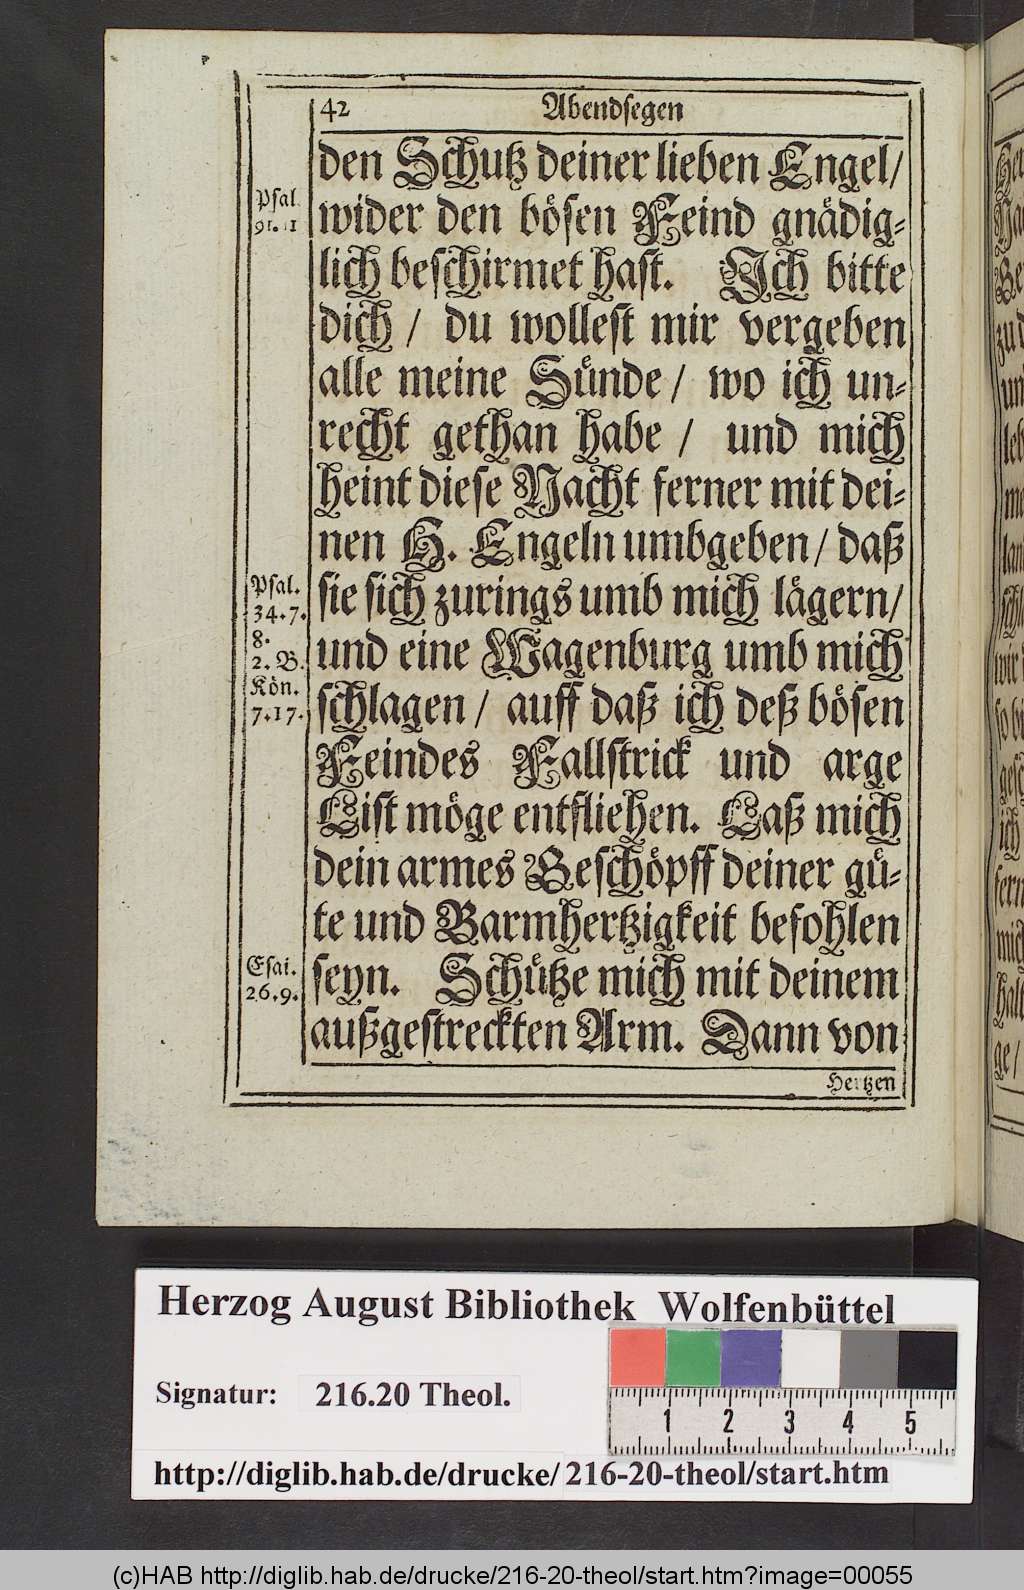 42 Abendsegen
den Schutz deiner lieben Engel/
Psal.
91. 11
wider den bösen Feind gnädig⸗
lich beschirmet hast. Ich bitte
dich / du wollest mir vergeben
alle meine Sünde / wo ich un⸗
recht gethan habe / und mich
heint diese Nacht ferner mit dei⸗
nen H. Engeln umbgeben / daß
Psal.
34.7.
8.
2. B.
Kön.
7.17.
sie sich zurings umb mich lägern/
und eine Wagenburg umb mich
schlagen / auff daß ich deß bösen
Feindes Fallstrick und arge
List möge entfliehen. Laß mich
dein armes Geschöpff deiner gü⸗
te und Barmhertzigkeit befohlen
Esai.
26.9.
seyn. Schütze mich mit deinem
außgestreckten Arm. Dann von
Hertzen
Herzog August Bibliothek Wolfenbüttel
Signatur: 216.20 Theol.
1 2 3 4 5
http://diglib.hab.de/drucke/ 216-20-theol/start.htm
(c)HAB http://diglib.hab.de/drucke/216-20-theol/start.htm?image=00055